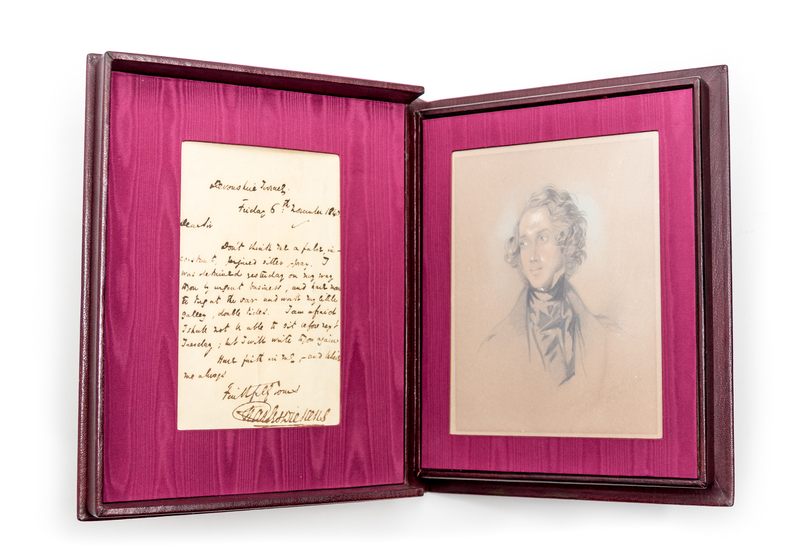 Devonshire Terrace.
Friday 6th November 184
Dear Sir
Don't think me a false, in-
constant, perjured sitter, pray. I
was detained yesterday on my way
upon by urgent business, and have now
to tug at the oar and work my little
galley, double tides. I am afraid
I shall not be able to sit before next
Tuesday; but I will write to you again
Have faith in me, – and believe
me always
Faithfully Yours
Charles Dickens